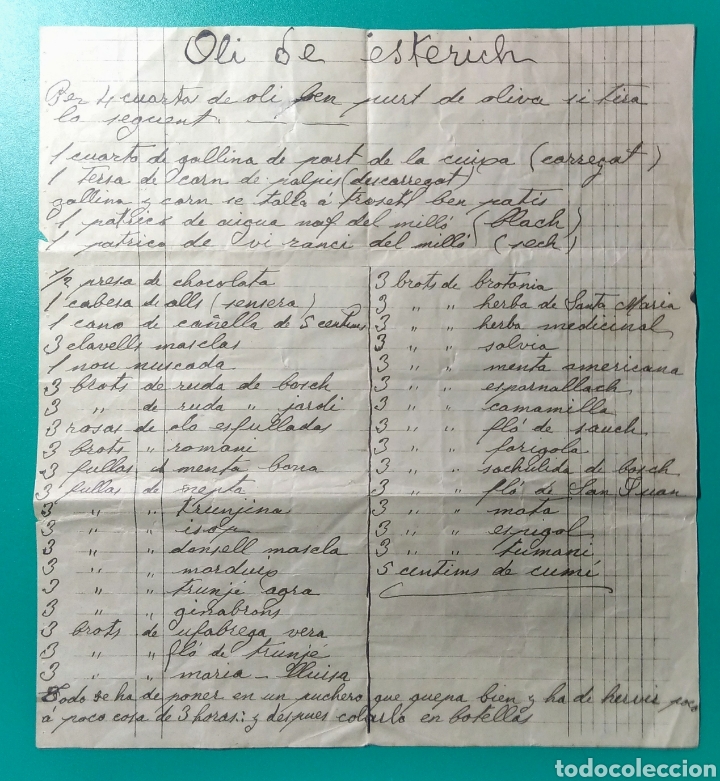 Oli de esterich
Per 4 cuartas de oli ben purt de oliva si tira
lo seguent.
1 cuarto de gallina de part de la cuixa (carregat)
1 tersa de carn de palpis (descarregat)
gallina y carn se talla á trosets ben patis
1 patrico de aigua naf del milló (blach)
1 patrico de vi ranci del milló (sech)
1/2 presa de chocolata
1 cabesa de alls (sensera)
1 cano de cañella de 5 centims
3 clavells masclas
1 nou nuscada
3 brots de ruda de bosch
3 " de ruda " jardi
3 rosas de olo esfulladas
3 brots " romani
3 fullas de menta bona
3 fullas de menta
3 " " trunjina
3 " " isop
3 " " donsell mascla
3 " " marduix
3 " " trunjé agra
3 " " ginabrons
3 brots de ufabrega vera
3 " " fló de trunjé
3 " " maria-lluisa
3 brots de brotonia
3 " " herba de Santa Maria
3 " " herba medicinal
3 " " salvia
3 " " menta americana
3 " " esparnallach
3 " " camamilla
3 " " fló de sauch
3 " " farigola
3 " " sachulida de bosch
3 " " fló de San Juan
3 " " mata
3 " " espigol
3 " " tumani
5 centims de cumí
Todo se ha de poner en un puchero que quepa bien y ha de hervir poco
á poco cosa de 3 horas: y despues colarlo en botellas
todocoleccion